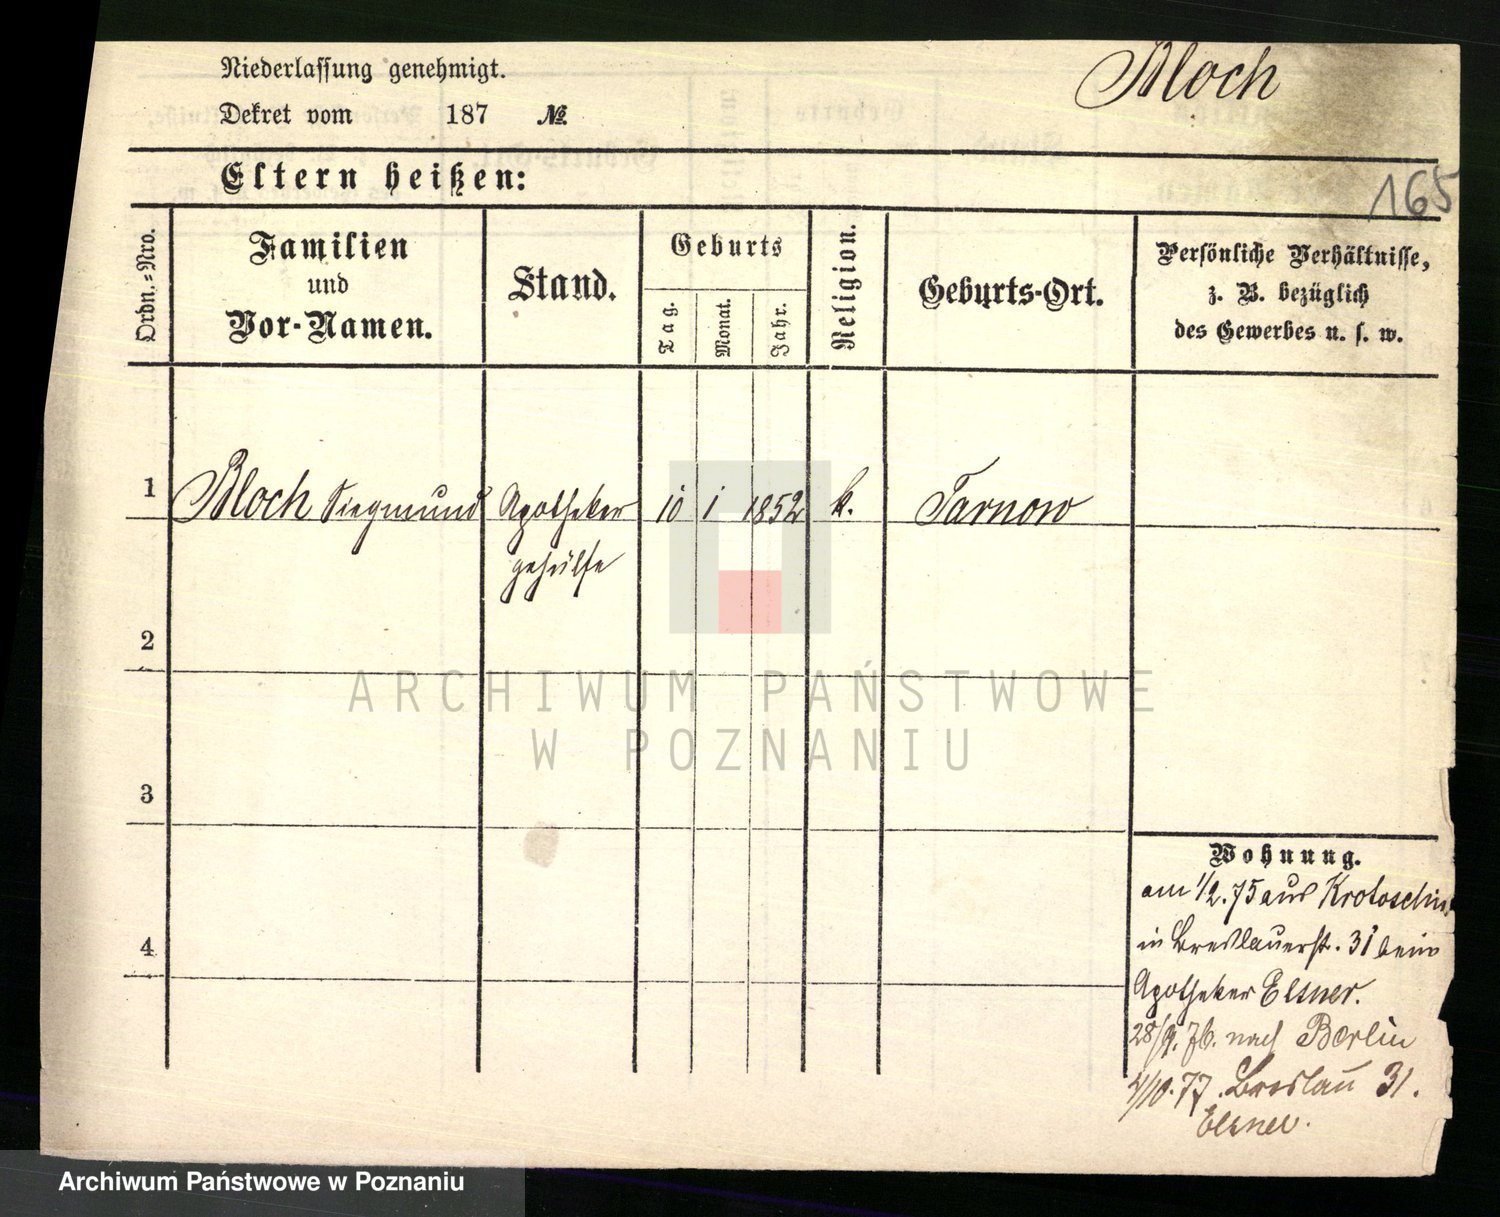 Niederlassung genehmigt.
Bloch
Dekret vom 187 №
Eltern heißen:
165
Ordn.=Nro.
Familien
und
Vor-Namen.
Stand.
Geburts
Tag.
Monat.
Jahr.
Religion.
Geburts-Ort.
Persönliche Verhältnisse,
z. B. bezüglich
des Gewerbes u. s. w.
1 Bloch Siegmund Apotheker 10 1 1852 k. Tarnow
gehülfe
2
3
4
Wohnung.
am 1/2.75 aus Krotoschin
in Breslauerst. 31 beim
Apotheker Elsner.
28/9.76. nach Berlin
4/10.77. Breslau 31.
Elsner.
ARCHIWUM PAŃSTWOWE
W POZNANIU
Archiwum Państwowe w Poznaniu